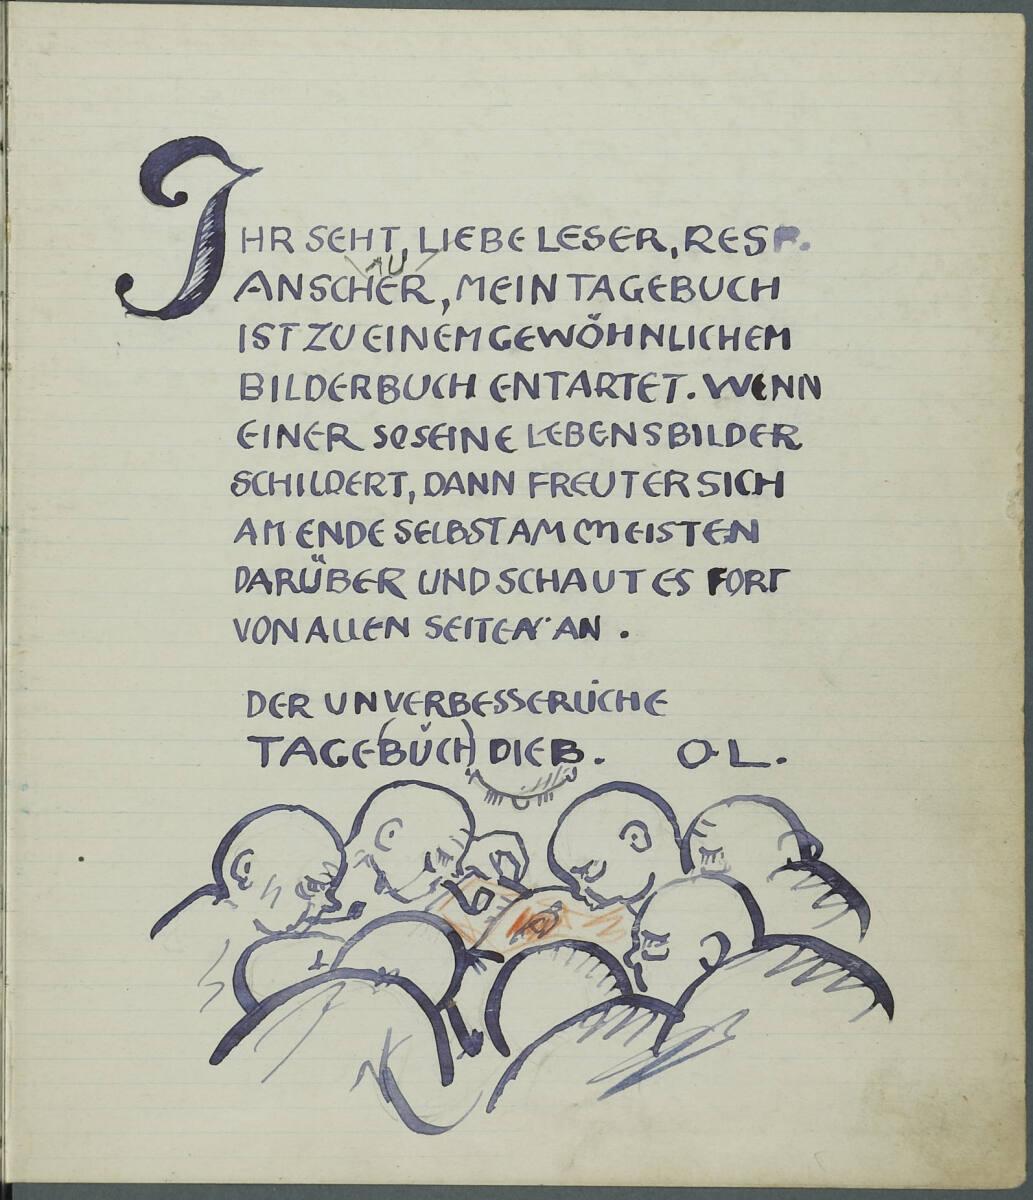 IHR SEHT, LIEBE LESER, RESP.
ANSCHAUER, MEIN TAGEBUCH
IST ZU EINEM GEWÖHNLICHEM
BILDERBUCH ENTARTET. WENN
EINER SO SEINE LEBENSBILDER
SCHILDERT, DANN FREUT ER SICH
AM ENDE SELBST AM MEISTEN
DARÜBER UND SCHAUT ES FORT
VON ALLEN SEITEN AN.
DER UNVERBESSERLICHE
TAGE(BUCH)DIEB. O.L.